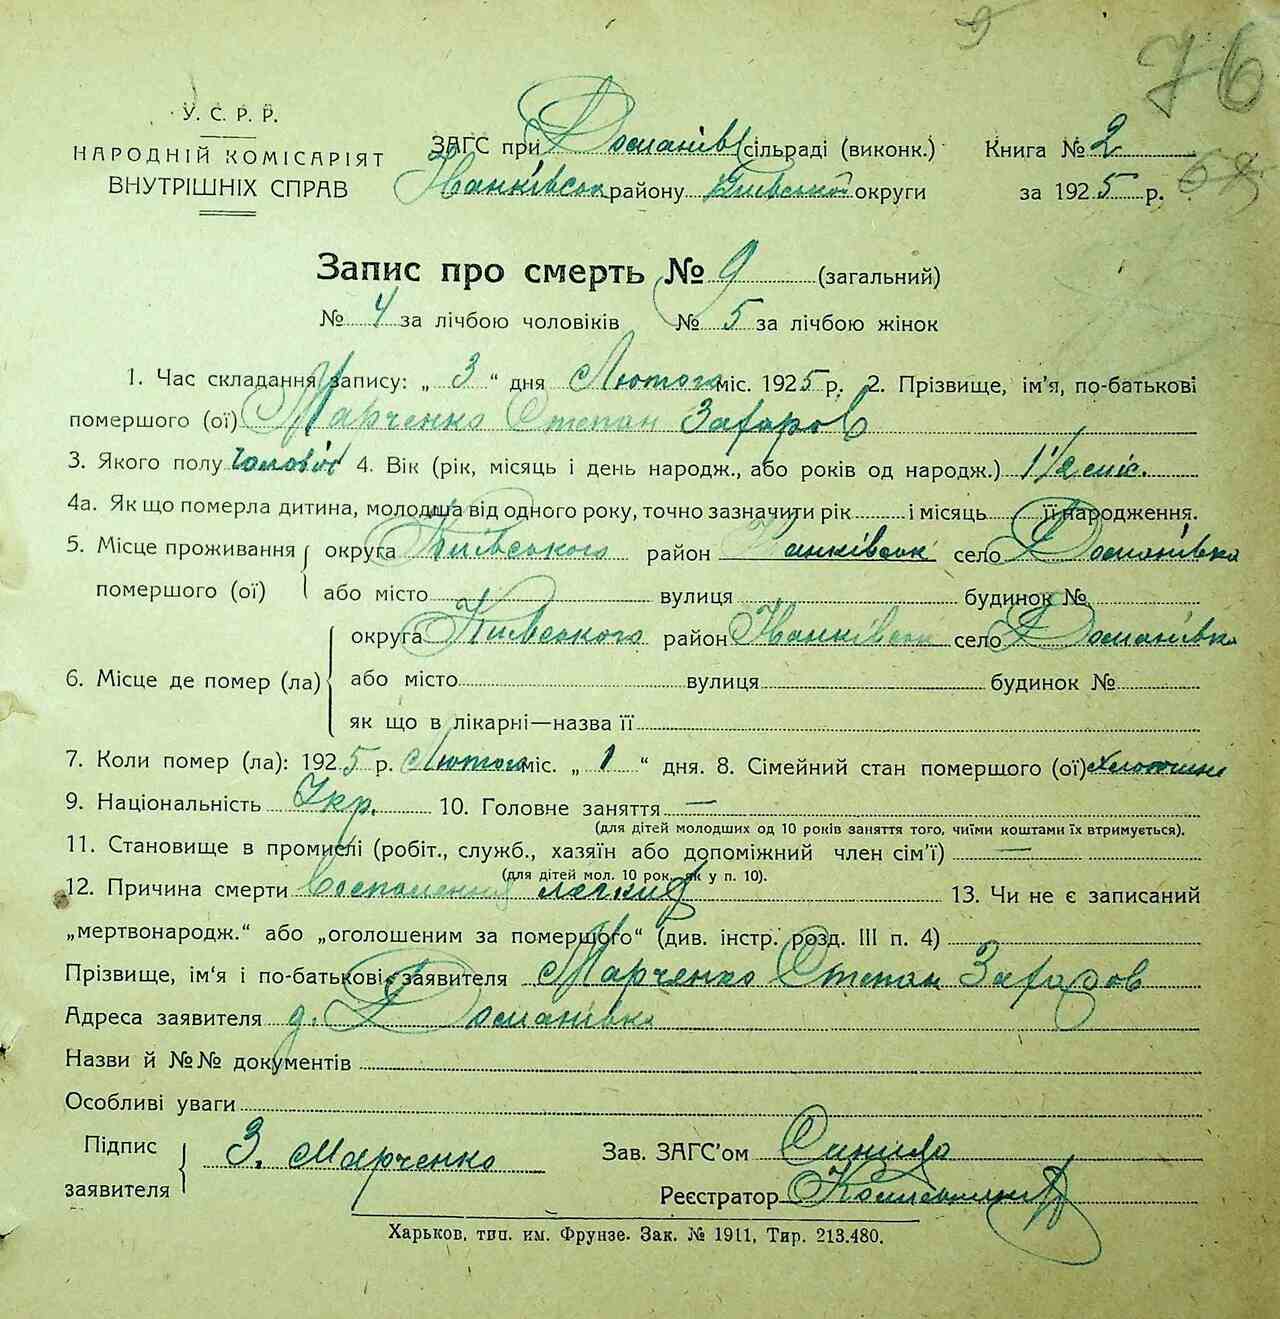 76
У. С. Р. Р.
НАРОДНІЙ КОМІСАРІЯТ
ВНУТРІШНІХ СПРАВ
ЗАГС при сільраді (виконк.) Книга № 2
Іванківськ району Київської округи за 1925 р.
Запис про смерть № 9 (загальний)
№ 4 за лічбою чоловіків № 5 за лічбою жінок
1. Час складання запису: „ 3 “ дня Лютого міс. 1925 р. 2. Прізвище, ім'я, по-батькові
помершого (ої) Марченко Степан Захаров
3. Якого полу 4. Вік (рік, місяць і день народж., або років од народж.) 1 1/2 міс.
4а. Як що померла дитина, молодша від одного року, точно зазначити рік і місяць її народження.
5. Місце проживання округа Київського район Іванківськ село
помершого (ої) або місто вулиця будинок №
округа Київського район Іванківськ село
6. Місце де помер (ла) або місто вулиця будинок №
як що в лікарні—назва її
7. Коли помер (ла): 1925 р. Лютого міс. „ 1 “ дня. 8. Сімейний стан помершого (ої)
9. Національність Укр. 10. Головне заняття —
(для дітей молодших од 10 років заняття того, чиїми коштами їх втримується).
11. Становище в промислі (робіт., служб., хазяїн або допоміжний член сім'ї) —
(для дітей мол. 10 рок. як у п. 10).
12. Причина смерти легких 13. Чи не є записаний
„мертвонародж.“ або „оголошеним за помершого“ (див. інстр. розд. III п. 4)
Прізвище, ім'я і по-батькові заявителя Марченко Степан Захаров
Адреса заявителя
Назви й №№ документів
Особливі уваги
Підпис заявителя З. Марченко Зав. ЗАГС'ом
Реєстратор
Харьков, тип. им. Фрунзе. Зак. № 1911, Тир. 213.480.